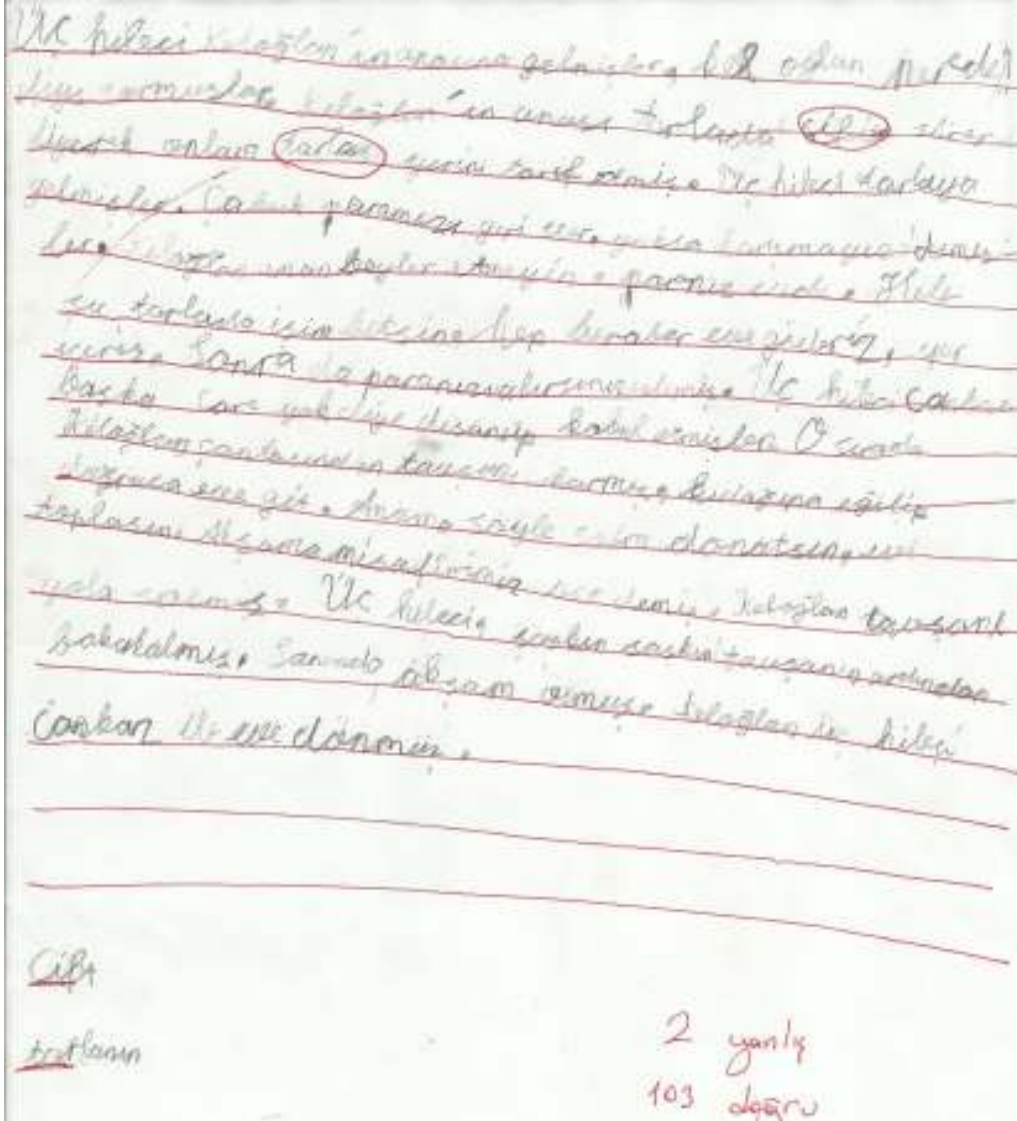 Üc hileci Keloğlan'ın anasına gelmişler, bol oğlun nerede?
diye sormuşlar. Keloğlan'ın anası tarlada sürer
diyerek onlara tarlanın yerini tarif etmiş. Üc hileci tarlaya
gelmişler. Çabuk paramızı geri ver, yoksa karışmayız demiş-
ler. Keloğlan aman beyler etmeyin. paranız evde. Hele
şu tarlada işim bitsin hep beraber eve gideriz, yer
içeriz. Sonra da paranızı alırsınız demiş. Üc hileci
başka çare yok diye düşünüp kabul etmişler. O sırada
Keloğlan çantasından tavşanı çıkarmış, kulağına eğilip
doğruca eve git. Anama söyle sofra donatsın, evi
toplasın. Akşama misafirimiz var demiş. Keloğlan tavşanı
yola salmış. Üc hileci, şaşkın şaşkın tavşanın ardından
bakakalmış. Sonunda akşam olmuş. Keloğlan üc hileci
ile eve dönmüş.
Çift
tarlanın
2 yanlış
103 doğru